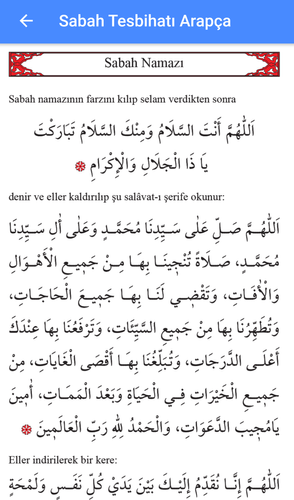 Sabah Tesbihatı Arapça
Sabah Namazı
Sabah namazının farzını kılıp selam verdikten sonra
اَللّٰهُمَّ أَنْتَ السَّلَامُ وَمِنْكَ السَّلَامُ تَبَارَكْتَ
يَا ذَا الْجَلَالِ وَالْإِكْرَامِ
denir ve eller kaldırılıp şu salâvat-ı şerife okunur:
اَللّٰهُمَّ صَلِّ عَلٰى سَيِّدِنَا مُحَمَّدٍ وَعَلٰى أٰلِ سَيِّدِنَا
مُحَمَّدٍ، صَلَاةً تُنْجِينَا بِهَا مِنْ جَمِيعِ الْأَهْوَالِ
وَالْأٰفَاتِ، وَتَقْضِي لَنَا بِهَا جَمِيعَ الْحَاجَاتِ،
وَتُطَهِّرُنَا بِهَا مِنْ جَمِيعِ السَّيِّئَاتِ، وَتَرْفَعُنَا بِهَا عِنْدَكَ
أَعْلَى الدَّرَجَاتِ، وَتُبَلِّغُنَا بِهَا أَقْصَى الْغَايَاتِ، مِنْ
جَمِيعِ الْخَيْرَاتِ فِي الْحَيَاةِ وَبَعْدَ الْمَمَاتِ، أٰمِينَ
يَامُجِيبَ الدَّعَوَاتِ، وَالْحَمْدُ لِلّٰهِ رَبِّ الْعَالَمِينَ
Eller indirilerek bir kere:
اَللّٰهُمَّ إِنَّا نُقَدِّمُ إِلَيْكَ بَيْنَ يَدَيْ كُلِّ نَفَسٍ وَلَمْحَةٍ